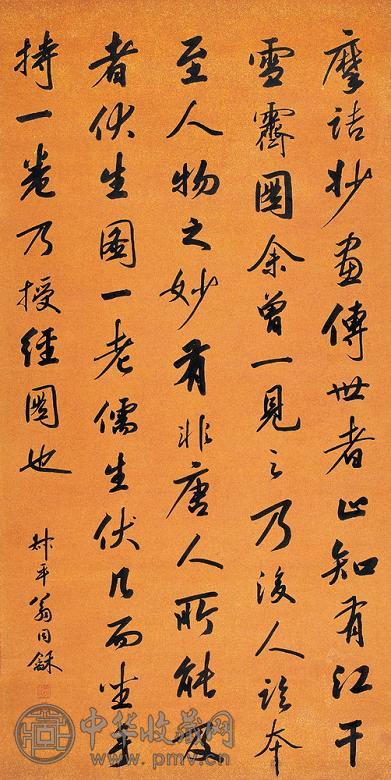 摩詰妙畫傳世者止知有江干
雪霽圖余曾一見之乃後人臨本
至人物之妙有非唐人所能及
者伏生圖一老儒生伏几而坐手
持一卷乃授經圖也
叔平翁同龢
中华收藏网
www.pmv.cn